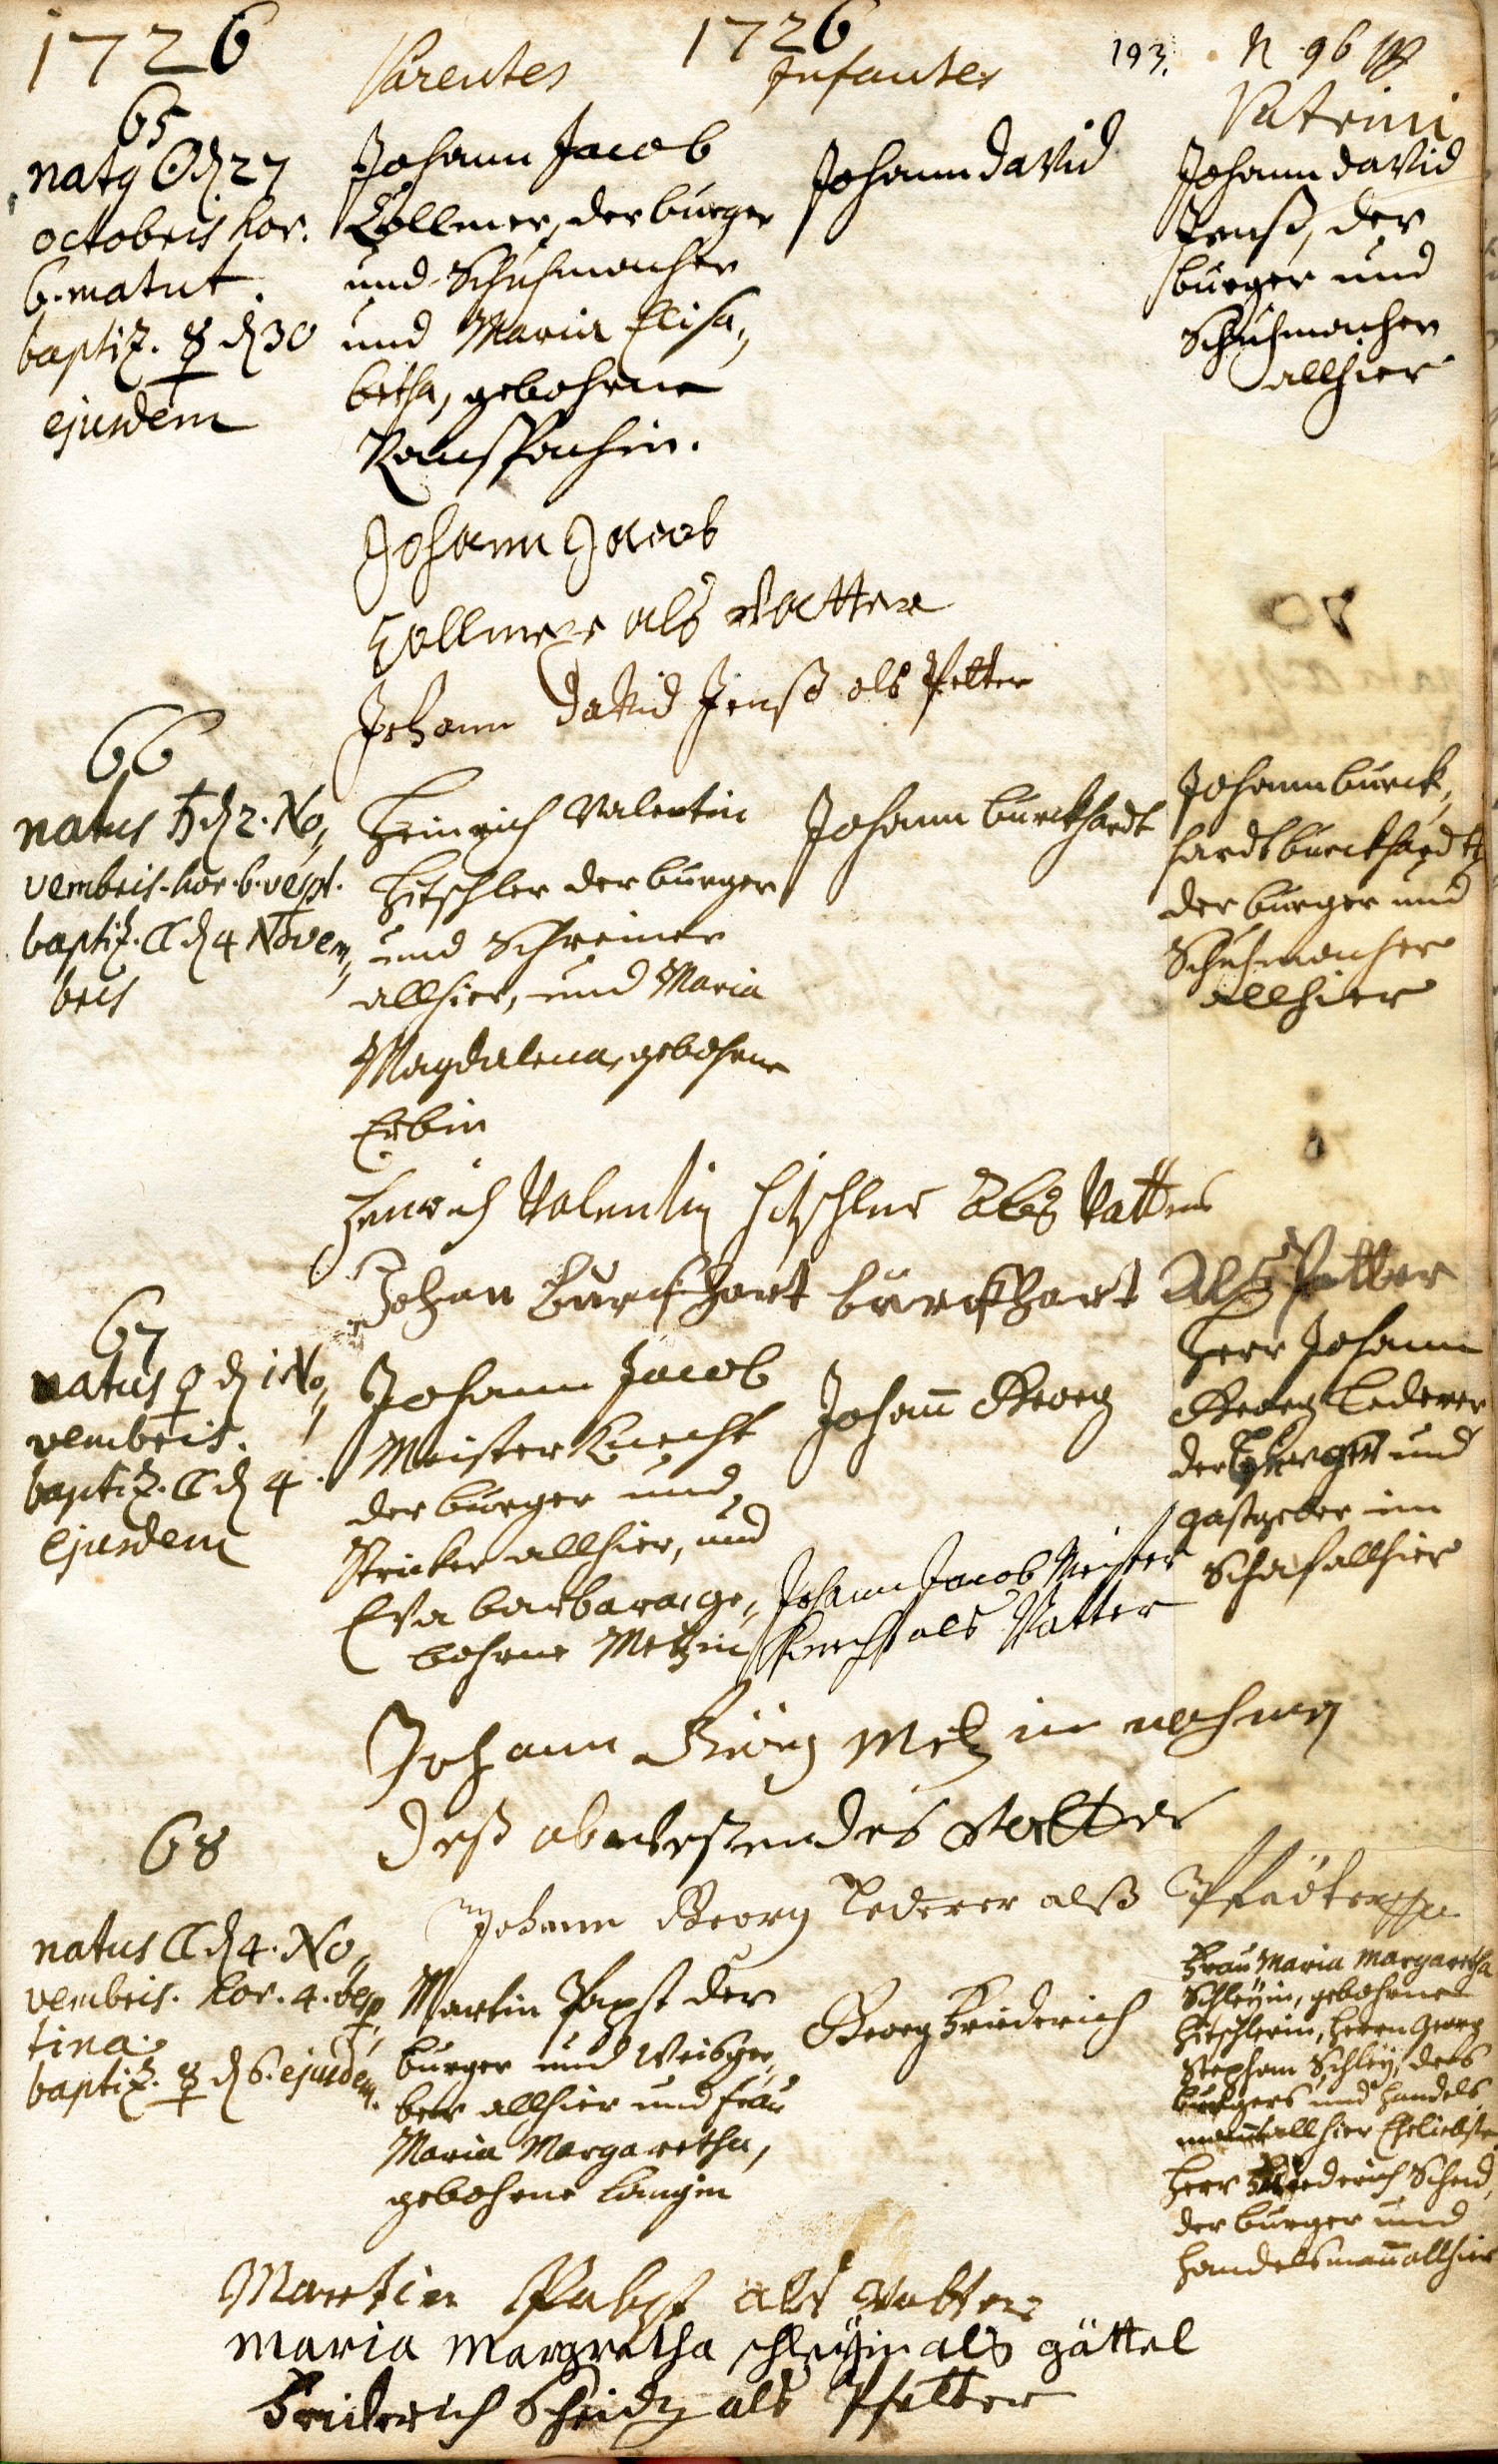 1726
1726
193.
N 96
Parentes
Infantes
Patrini
65
natq ☉ d 27
octobris hor.
6. matut.
baptiz. ☿ d 30
ejusdem
Johann Jacob
Vollmer, der burger
und Schuhmacher
und Maria Elisa„
betha, gebohrne
Ramspachin.
Johann david
Johann david
Jenß, der
burger und
Schuhmacher
allhier
Johann Jacob
Vollmer als Vatter
Johann david Jenß als Petter
66
natus ♄ d 2. No„
vembris. hor. 6. vesp.
baptiz. ☾ d 4 Novem„
bris
Heinrich Valentin
Hitschler der burger
und Schreiner
allhier, und Maria
Magdalena, gebohrne
Erbin
Johann burckhardt
Johann burck„
hardt burckhardt
der burger und
Schuhmacher
allhier
Henrich Valentin Hitschler Als Vatter
Johan burckhart burckhart Als Petter
67
natus ♀ d 1 No„
vembris.
baptiz. ☾ d 4.
ejusdem
Johann Jacob
Meister Knecht
der burger und
Stricker allhier, und
Eva barbara, ge„
bohrne Metzin
Johañ Georg
Herr Johann
Georg Lederer
der burger und
gastgeber im
Schaf allhier
Johann Jacob Meister
Knecht als Vatter
Johann Georg Metz im nahmen
deß abwesendes Vatter
Johann Georg Lederer alß Pfätter
68
natus ☾ d 4. No„
vembris. hor. 4. vesp„
tina.
baptiz. ☿ d 6. ejusdem.
Martin Papst der
burger und Weisger„
ber allhier und frau
Maria Margaretha,
gebohrne Langin
Georg Friederich
Frau Maria Margaretha
Schleÿin, gebohrne
Hitschlerin, Herrn Georg
Stephan Schleÿ, des
burgers und handels
mann allhier Eheliebste
Herr Friederich Scheid,
der burger und
handelsmañ allhier
Martin Pabst als Vatter
Maria Margretha schleÿin als göttel
Friderich Scheid als Pfetter